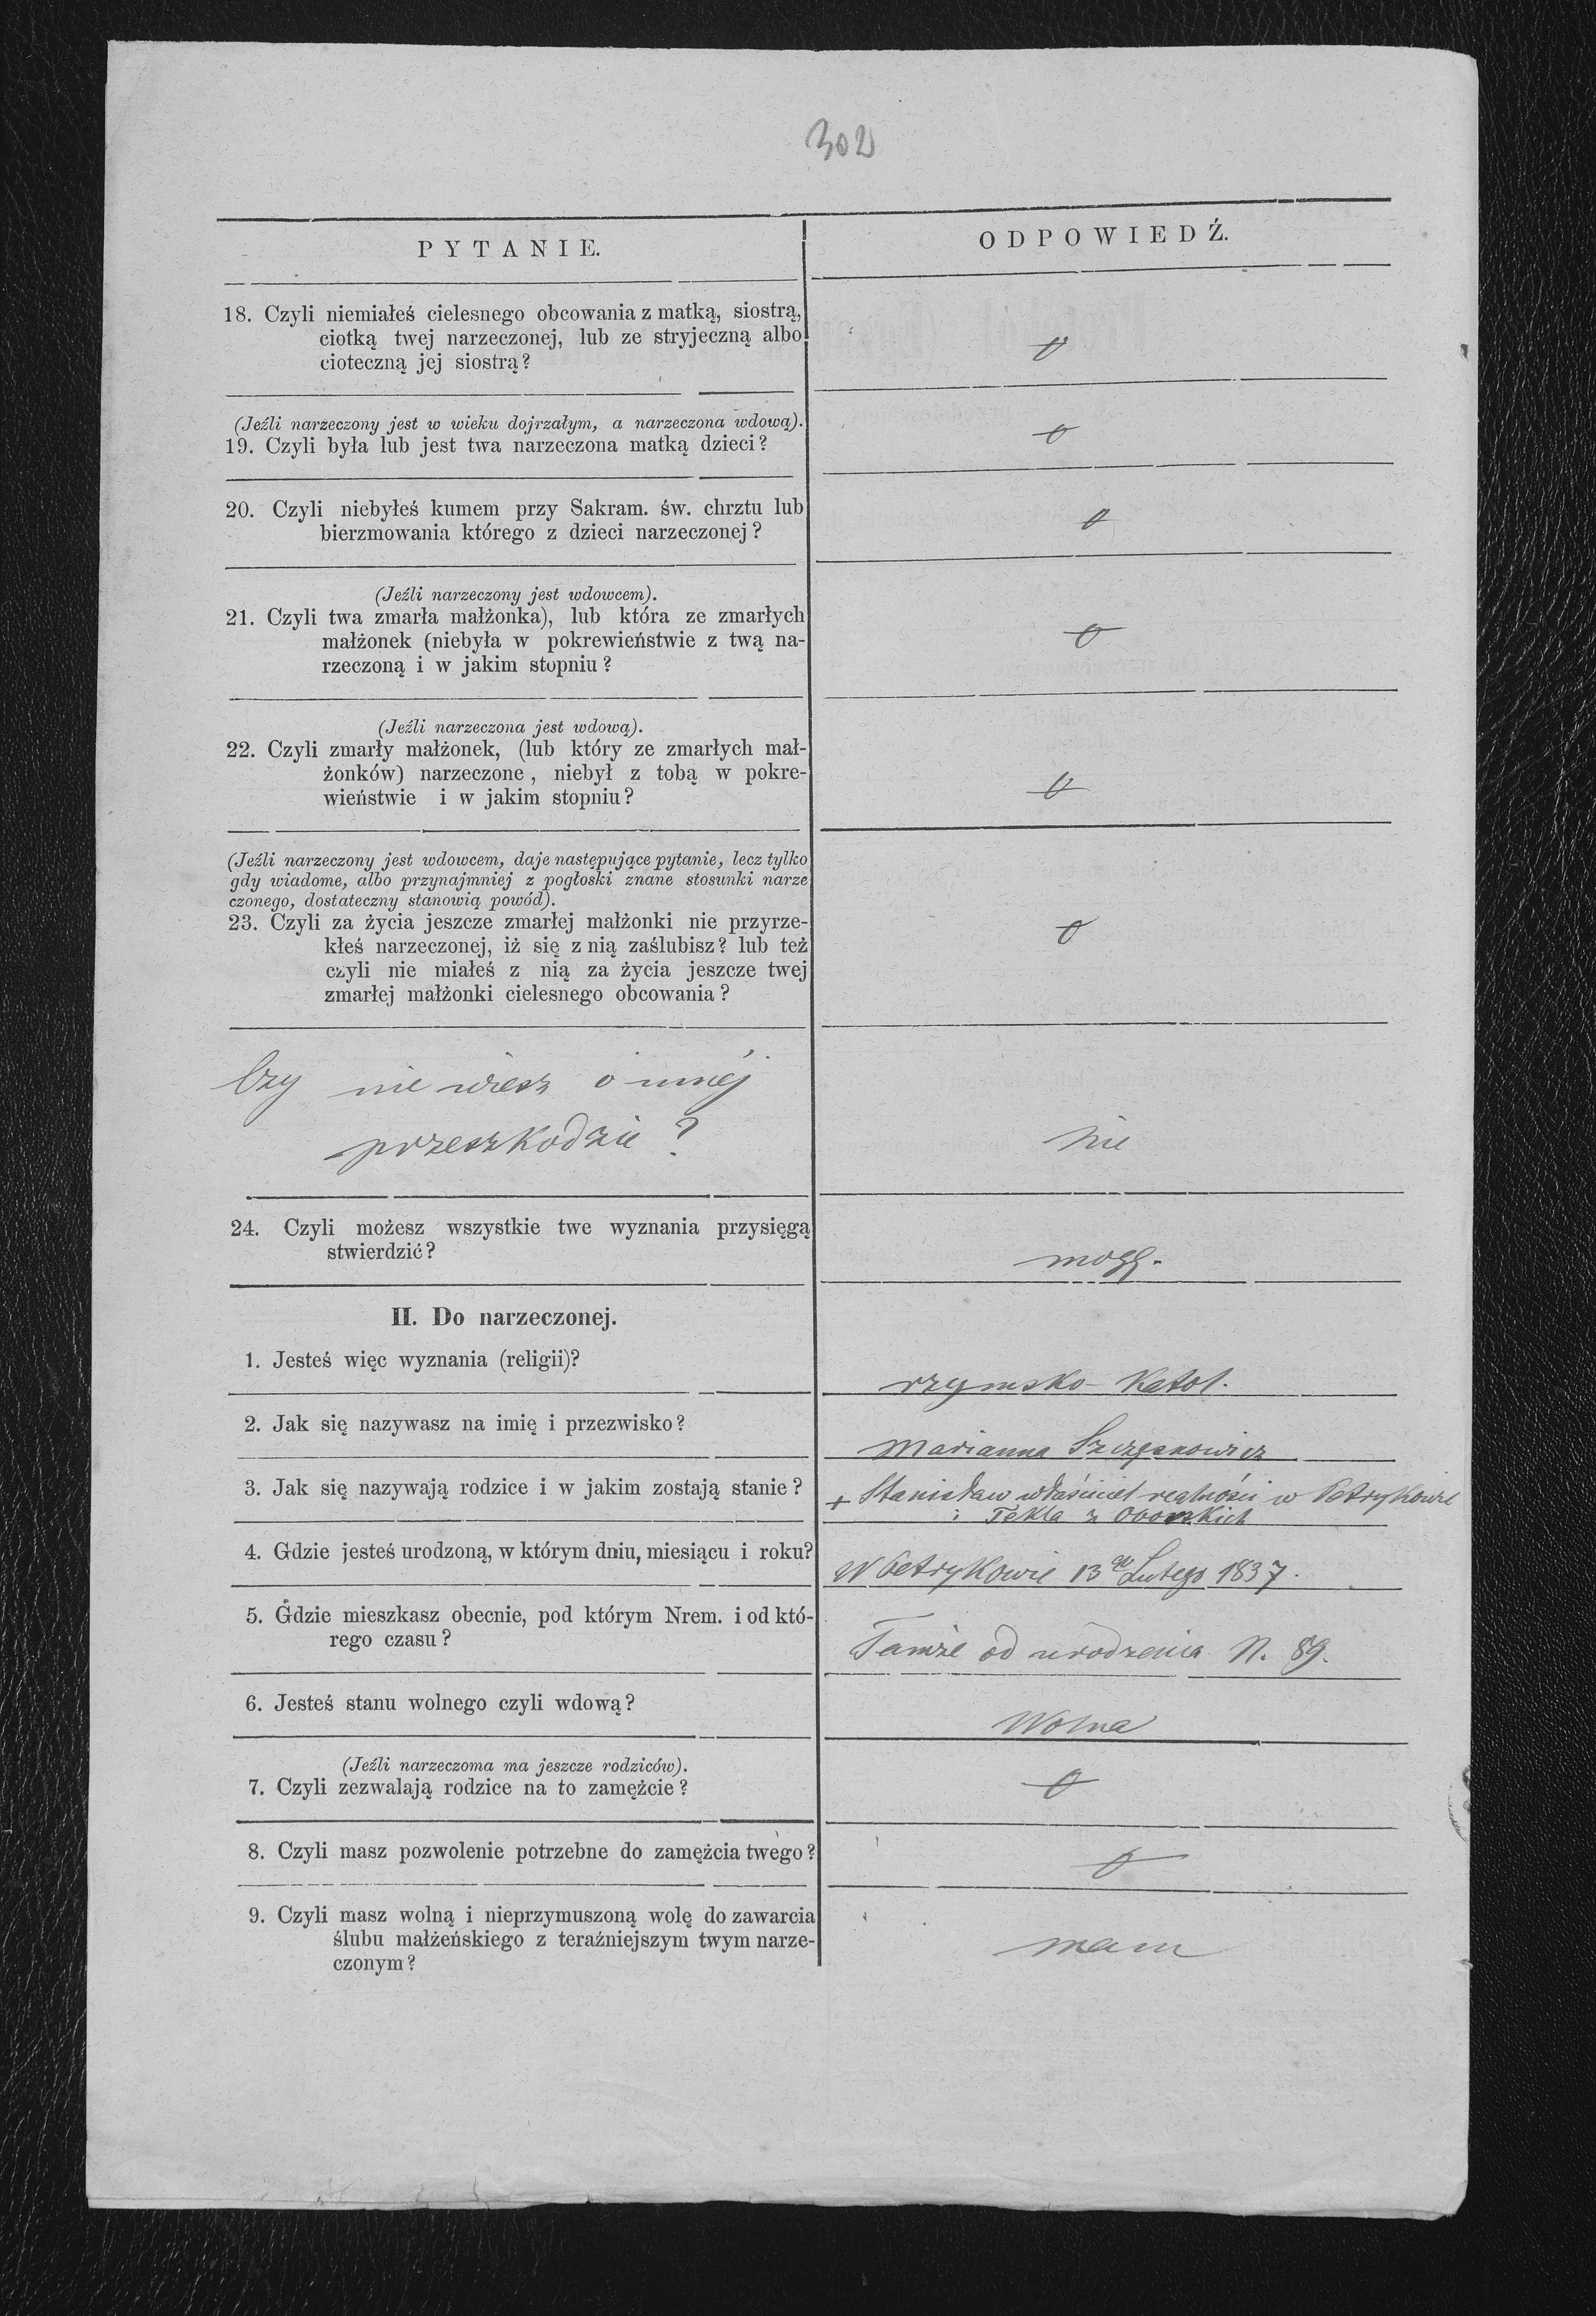 302
PYTANIE.
ODPOWIEDŹ.
18. Czyli niemiałeś cielesnego obcowania z matką, siostrą,
ciotką twej narzeczonej, lub ze stryjeczną albo
cioteczną jej siostrą?
(Jeźli narzeczony jest w wieku dojrzałym, a narzeczona wdową).
19. Czyli była lub jest twa narzeczona matką dzieci?
20. Czyli niebyłeś kumem przy Sakram. św. chrztu lub
bierzmowania którego z dzieci narzeczonej?
(Jeźli narzeczony jest wdowcem).
21. Czyli twa zmarła małżonka), lub która ze zmarłych
małżonek (niebyła w pokrewieństwie z twą na-
rzeczoną i w jakim stopniu?
(Jeźli narzeczona jest wdową).
22. Czyli zmarły małżonek, (lub który ze zmarłych mał-
żonków) narzeczone, niebył z tobą w pokre-
wieństwie i w jakim stopniu?
(Jeźli narzeczony jest wdowcem, daje następujące pytanie, lecz tylko
gdy wiadome, albo przynajmniej z pogłoski znane stosunki narze
czonego, dostateczny stanowią powód).
23. Czyli za życia jeszcze zmarłej małżonki nie przyrze-
kłeś narzeczonej, iż się z nią zaślubisz? lub też
czyli nie miałeś z nią za życia jeszcze twej
zmarłej małżonki cielesnego obcowania?
Czy nie wiesz o innej
przeszkodzie?
nie
24. Czyli możesz wszystkie twe wyznania przysięgą
stwierdzić?
mogę.
II. Do narzeczonej.
1. Jesteś więc wyznania (religii)?
rzymsko-katol.
2. Jak się nazywasz na imię i przezwisko?
Marianna
3. Jak się nazywają rodzice i w jakim zostają stanie?
+ Stanisław właściciel realności w Petrykowie
i Tekla z
4. Gdzie jesteś urodzoną, w którym dniu, miesiącu i roku?
W Petrykowie 13go Lutego 1837.
5. Gdzie mieszkasz obecnie, pod którym Nrem. i od któ-
rego czasu?
Tamże od urodzenia N. 89.
6. Jesteś stanu wolnego czyli wdową?
Wolna
(Jeźli narzeczoma ma jeszcze rodziców).
7. Czyli zezwalają rodzice na to zamężcie?
8. Czyli masz pozwolenie potrzebne do zamężcia twego?
9. Czyli masz wolną i nieprzymuszoną wolę do zawarcia
ślubu małżeńskiego z teraźniejszym twym narze-
czonym?
mam